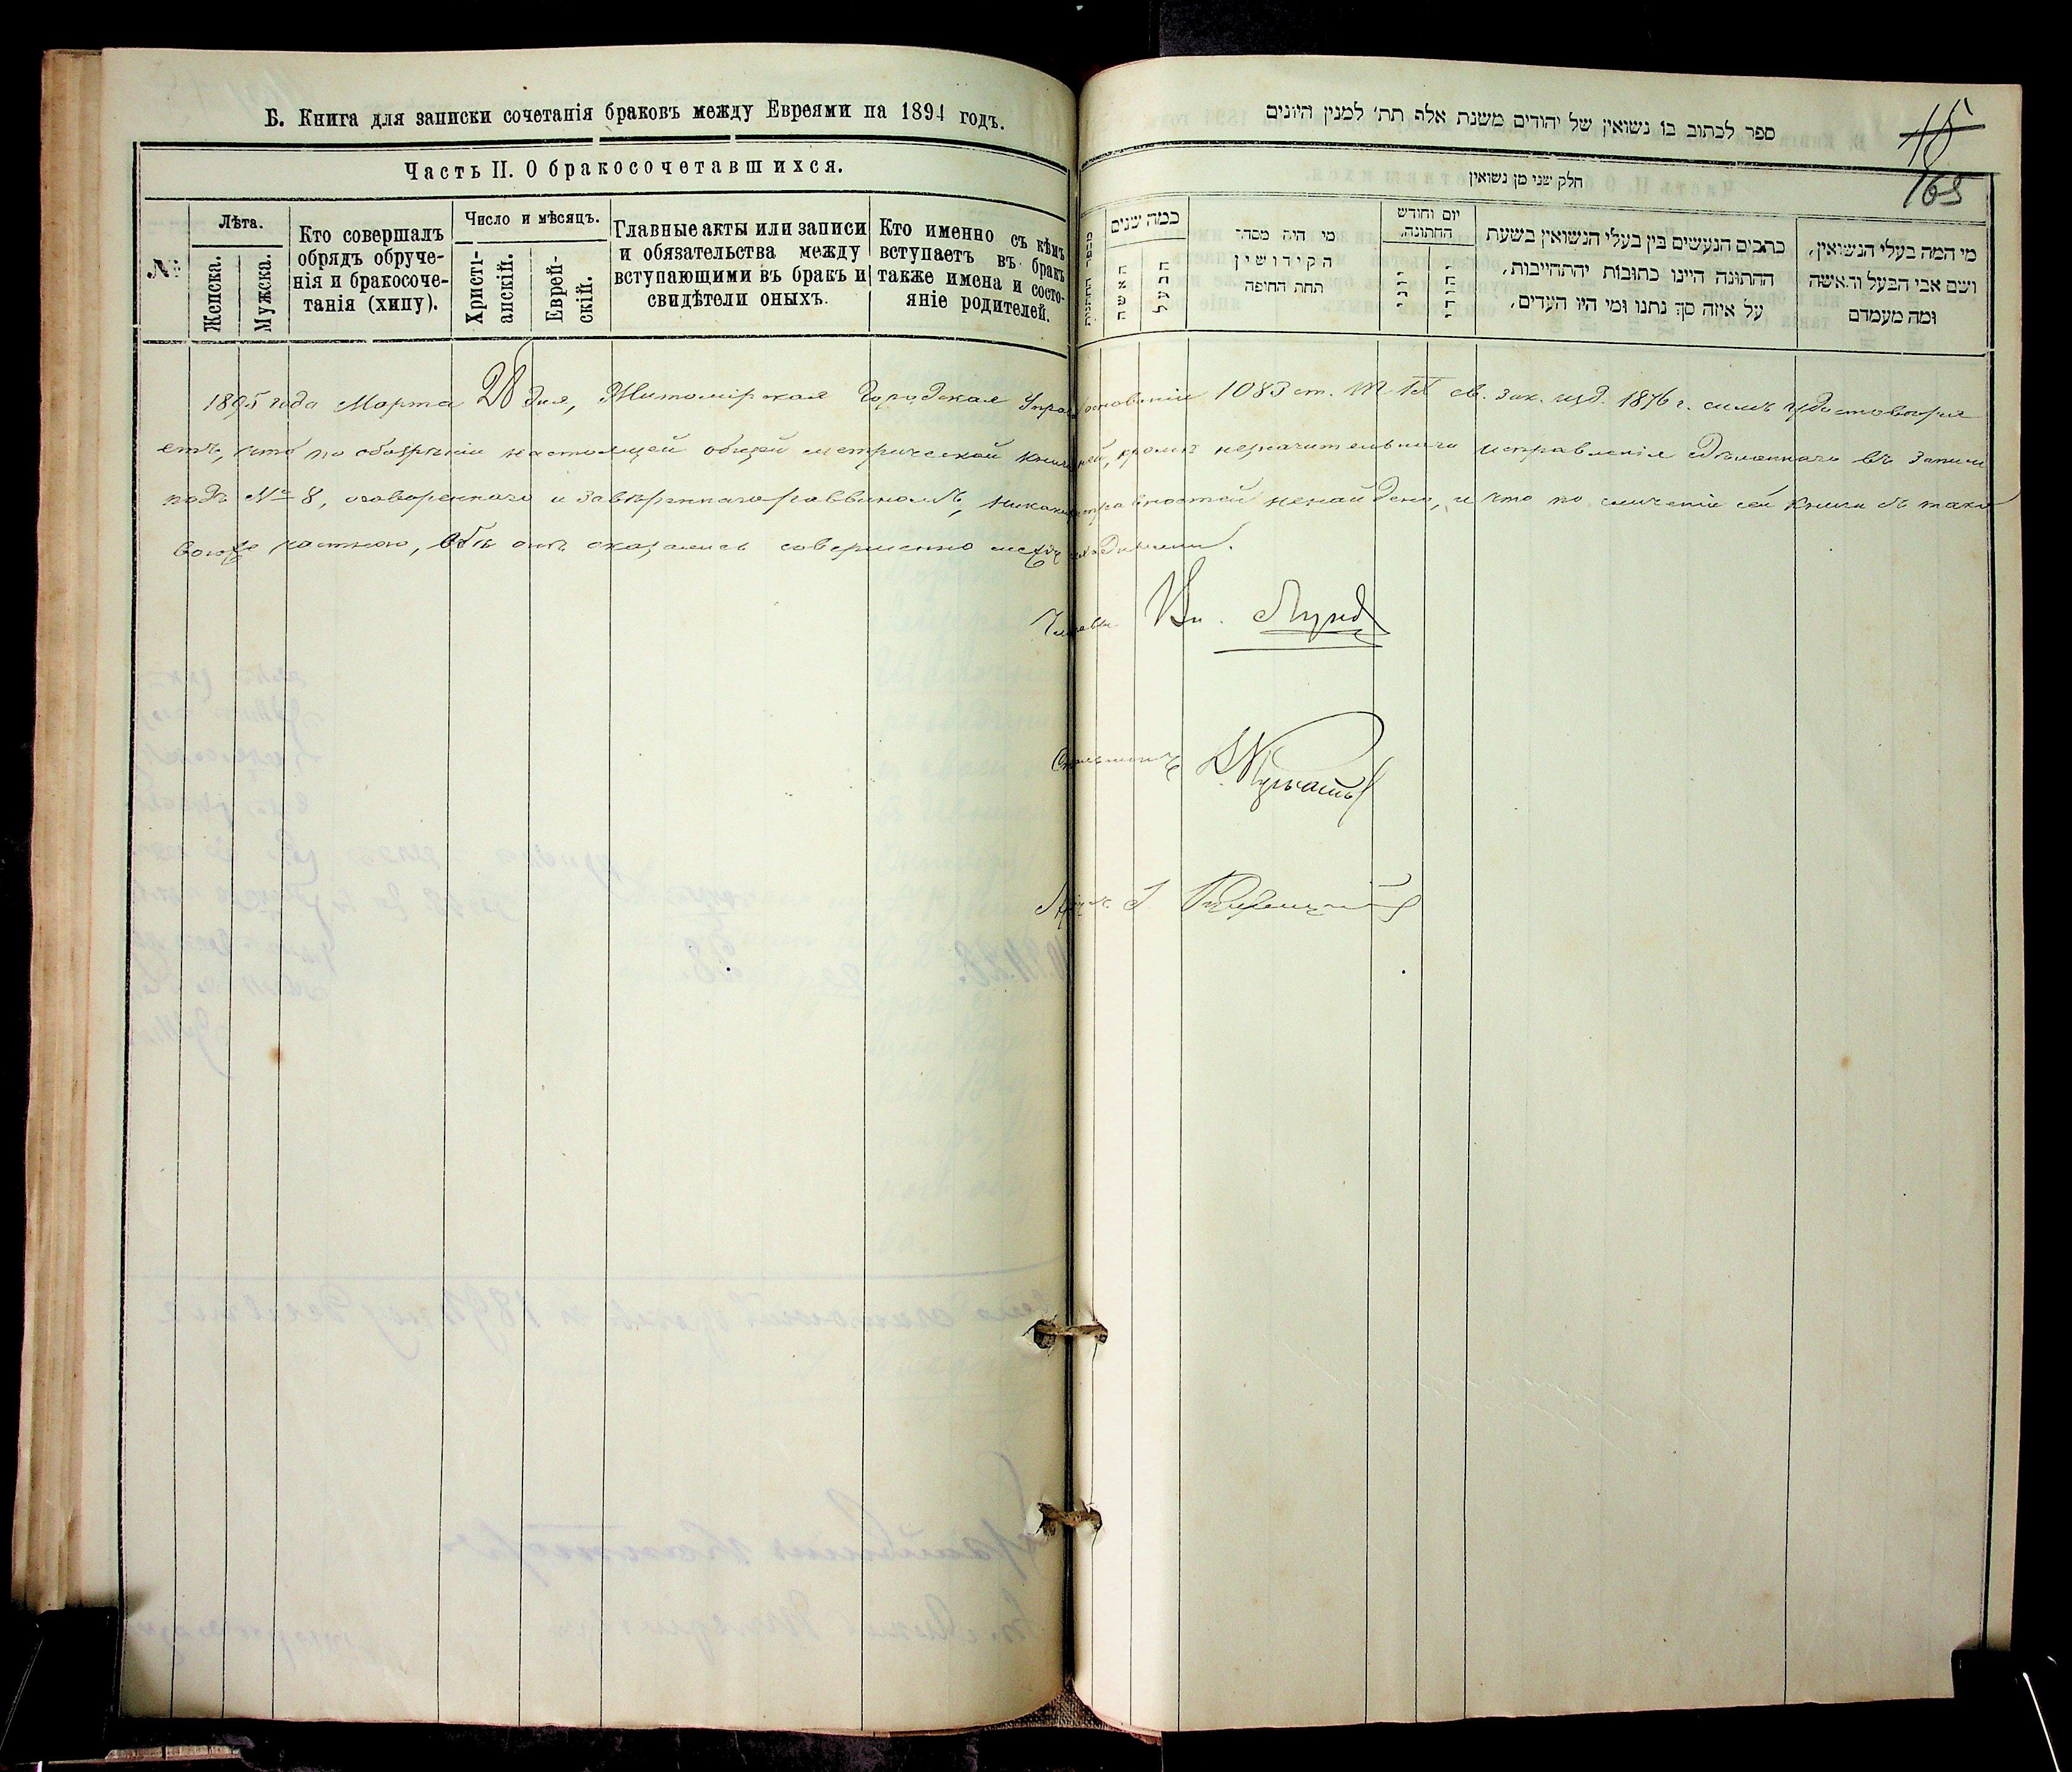 Б. Книга для записки сочетанія браковъ между Евреями на 1894 годъ.
Часть II. О бракосочетавшихся.
№
Лѣта.
Женска.
Мужска.
Кто совершалъ
обрядъ обруче-
нія и бракосоче-
танія (хипу).
Число и мѣсяцъ.
Христі-
анскій.
Еврей-
скій.
Главные акты или записи
и обязательства между
вступающими въ бракъ и
свидѣтели оныхъ.
Кто именно съ кѣмъ
вступаетъ въ бракъ
также имена и состо-
яніе родителей.
ספר לכתוב בו נשואין של יהודים משנת אלף תת׳ למנין היונים
15
165
חלק שני מן נשואין
מספר החתונות
כמה שנים
האשה
הבעל
מי היה מסדר
הקידושין
תחת החופה
יום וחודש
החתונה
יוני
יהודי
כתבים הנעשים בין בעלי הנשואין בשעת
החתונה היינו כתובות והתחייבות,
על איזה סך נתנו ומי היו העדים,
מי המה בעלי הנשואין,
ושם אבי הבעל והאשה
ומה מעמדם
1895 года Марта 28 дня, Житомірская Городская основаніи 1083 ст. т IX св. зак. изд. 1876 г. симъ удостовѣря
етъ, что по обозрѣніи настоящей общей метрической кромѣ незначительнаго исправленія сдѣланнаго въ записи
подъ № 8, оговореннаго и завѣреннаго раввиномъ, ненайдено, и что по сличеніи сей книги съ тако
вою же частною, обѣ онѣ оказались совершенно сходными.